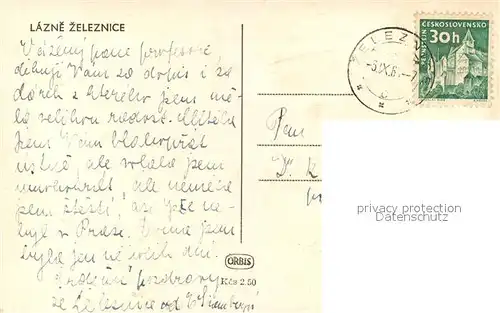 LÁZNĚ ŽELEZNICE
Vážený pane profesore
děkuji Vám za dopis i za
dárek z kterého jsem mě-
la velikou radost. Chtěla
jsem Vám blahopřát
ustně, ale volala jsem
ale neměla
jsem štěstí, až Vše ne-
byl v Praze. Doma jsem
byla jen několik dní.
Srdečné pozdravy
ze Železnice od
ORBIS
Kčs 2.50
Pan
Dr. K
ČESKOSLOVENSKO
30h
PERNŠTEJN
privacy protection
Datenschutz